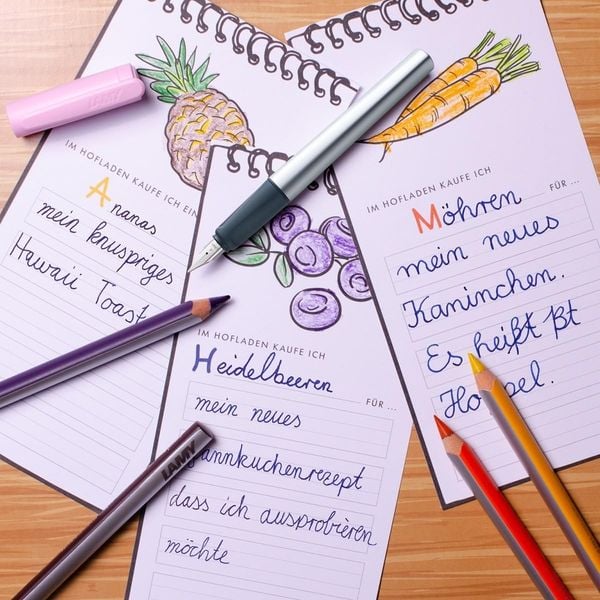 LAMY
IM HOFLADEN KAUFE ICH EIN
Ananas
mein knuspriges
Hawaii Toast
IM HOFLADEN KAUFE ICH
Heidelbeeren
FÜR ...
mein neues
dass ich ausprobieren
möchte
LAMY
IM HOFLADEN KAUFE ICH
FÜR ...
Möhren
mein neues
Kaninchen.
Es heißt
Hoppel.